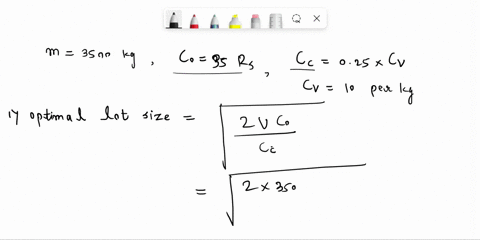 m = 3500 kg , C₀ = 95 Rs , C_c = 0.25 × C_V
C_V = 10 per kg
1) optimal lot size = √(2 V C₀ / C_c)
= √(2 × 350